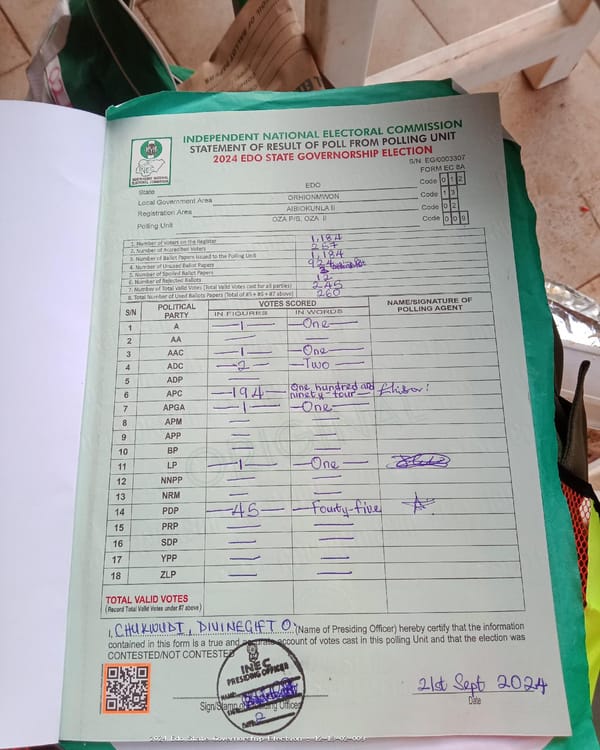 INDEPENDENT NATIONAL ELECTORAL COMMISSION
STATEMENT OF RESULT OF POLL FROM POLLING UNIT
2024 EDO STATE GOVERNORSHIP ELECTION
S/N: EG/0003307
FORM EC 8A
State EDO Code 0 1 2
Local Government Area ORHIONMWON Code 1 3
Registration Area AIBIOKUNLA II Code 0 2
Polling Unit OZA P/S, OZA II Code 0 0 9
1. Number of Voters on the Register 1,184
2. Number of Accredited Voters 257
3. Number of Ballot Papers Issued to the Polling Unit 1,184
4. Number of Unused Ballot Papers 924
5. Number of Spoiled Ballot Papers 3
6. Number of Rejected Ballots 12
7. Number of Total Valid Votes (Total Valid Votes cast for all parties) 245
8. Total Number of Used Ballots Papers (Total of #5 + #6 + #7 above) 260
S/N POLITICAL PARTY VOTES SCORED NAME/SIGNATURE OF POLLING AGENT
IN FIGURES IN WORDS
1 A 1 One
2 AA
3 AAC 1 One
4 ADC 2 Two
5 ADP
6 APC 194 One hundred and ninety-four
7 APGA 1 One
8 APM
9 APP
10 BP
11 LP 1 One
12 NNPP
13 NRM
14 PDP 45 Fourty-five
15 PRP
16 SDP
17 YPP
18 ZLP
TOTAL VALID VOTES
(Record Total Valid Votes under #7 above)
I, CHUKWUDI, DIVINEGIFT O. (Name of Presiding Officer) hereby certify that the information
contained in this form is a true and accurate account of votes cast in this polling Unit and that the election was
CONTESTED/NOT CONTESTED
INEC
PRESIDING OFFICER
NAME:
DATE:
Sign/Stamp of Presiding Officer
21st Sept 2024
Date
2024 Edo State Governorship Election - 12-13-02-009